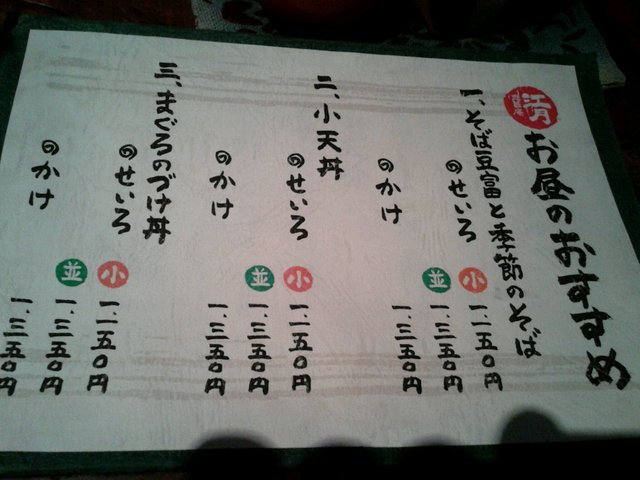 江月
お昼のおすすめ
一、そば豆富と季節のそば
のせいろ 小 一、二五〇円
並 一、三五〇円
のかけ 一、三五〇円
二、小天丼
のせいろ 小 一、二五〇円
並 一、三五〇円
のかけ 一、三五〇円
三、まぐろのづけ丼
のせいろ 小 一、二五〇円
並 一、三五〇円
のかけ 一、三五〇円